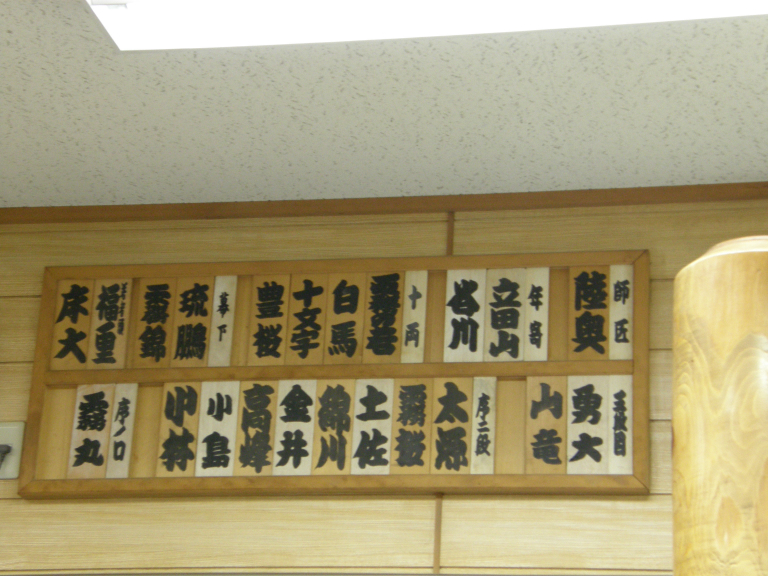 師匠
陸奥
年寄
立田山
谷川
十両
霧の若
白馬
十文字
豊桜
幕下
琉鵬
霧錦
福重
床大
三段目
勇大
山竜
序二段
太源
霧桜
土佐
錦川
金井
高峰
小島
小林
序ノ口
霧丸